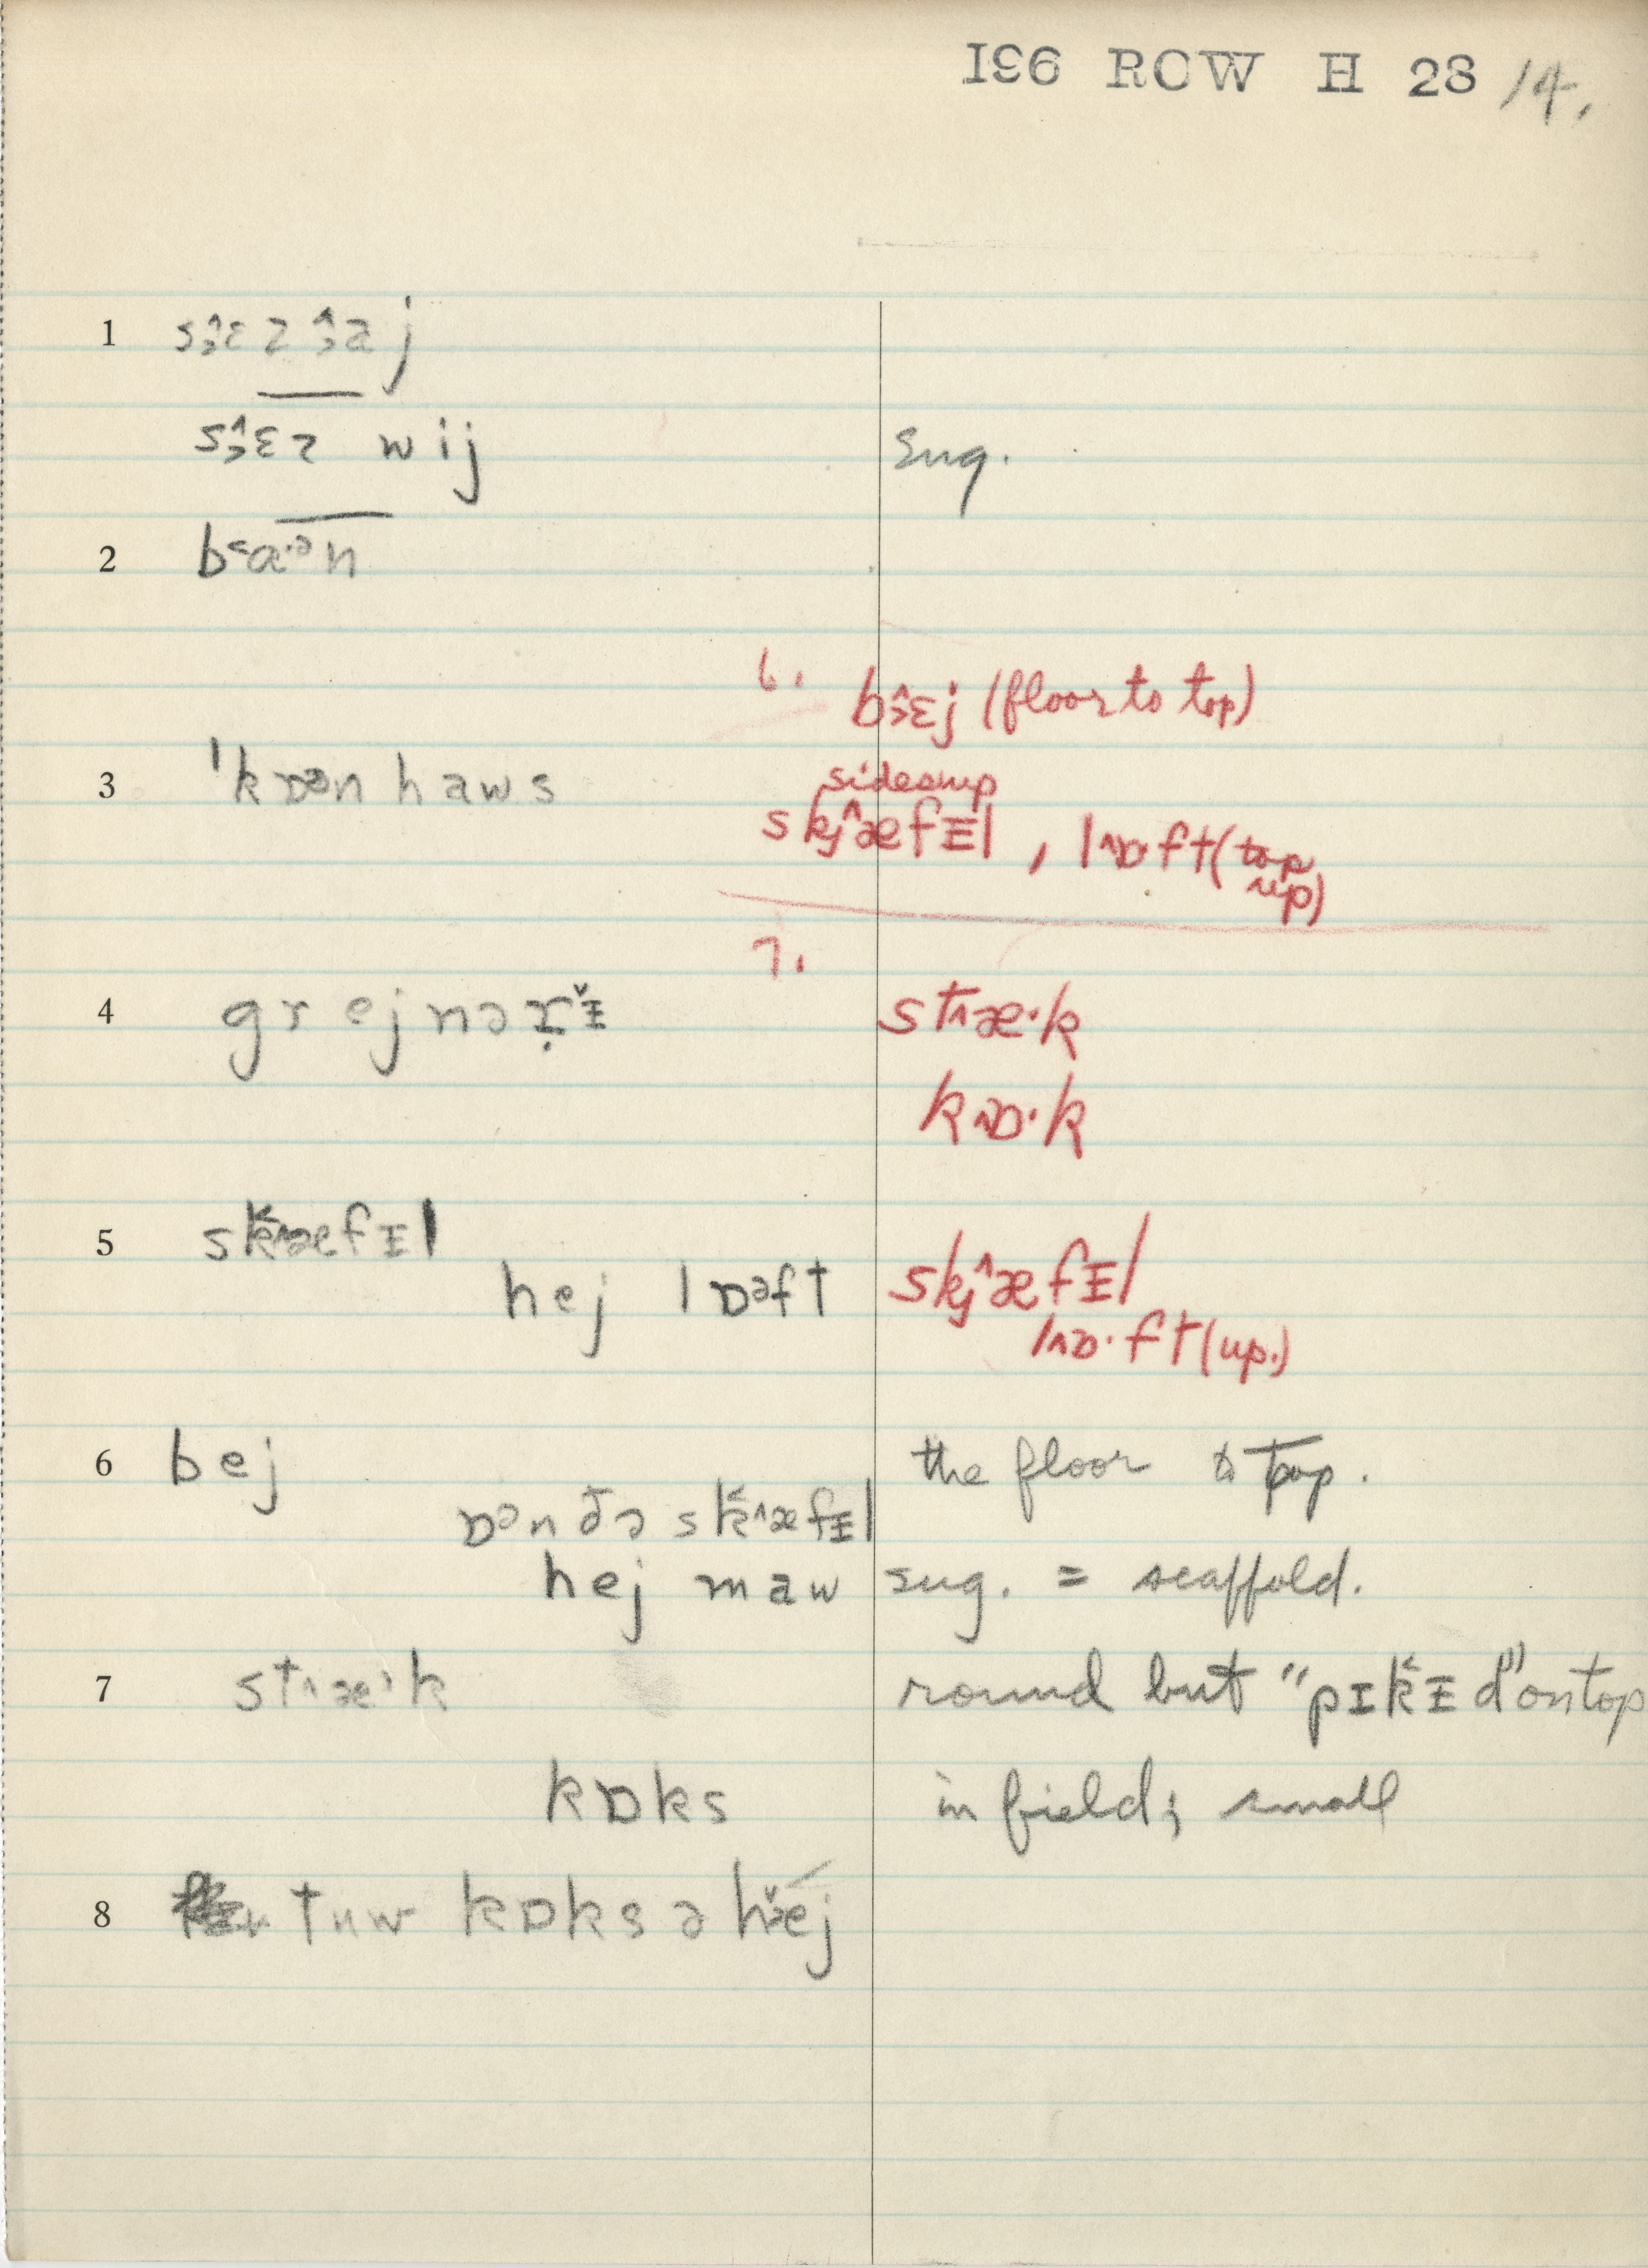 196 ROW H 28 14.
1
wij sug.
2
6. bɜ̂ɛj (floor to top)
3 ˈkɒᵊn haws sides up
skj^æfɪl , l^ɒ·ft (top
up)
7.
4 st^æ·k
k^ɒ·k
5 sk^æfɪl skj^æfɪl
hej lɒᵊft l^ɒ·ft (up.)
6 bej the floor to top.
ɒᵊn ðə sk̬^æfɪl
hej maw sug. = scaffold.
7 st^æ·k round but "pɪk̬ɪd" on top
kɒks in field; small
8 tuw kɒks ə